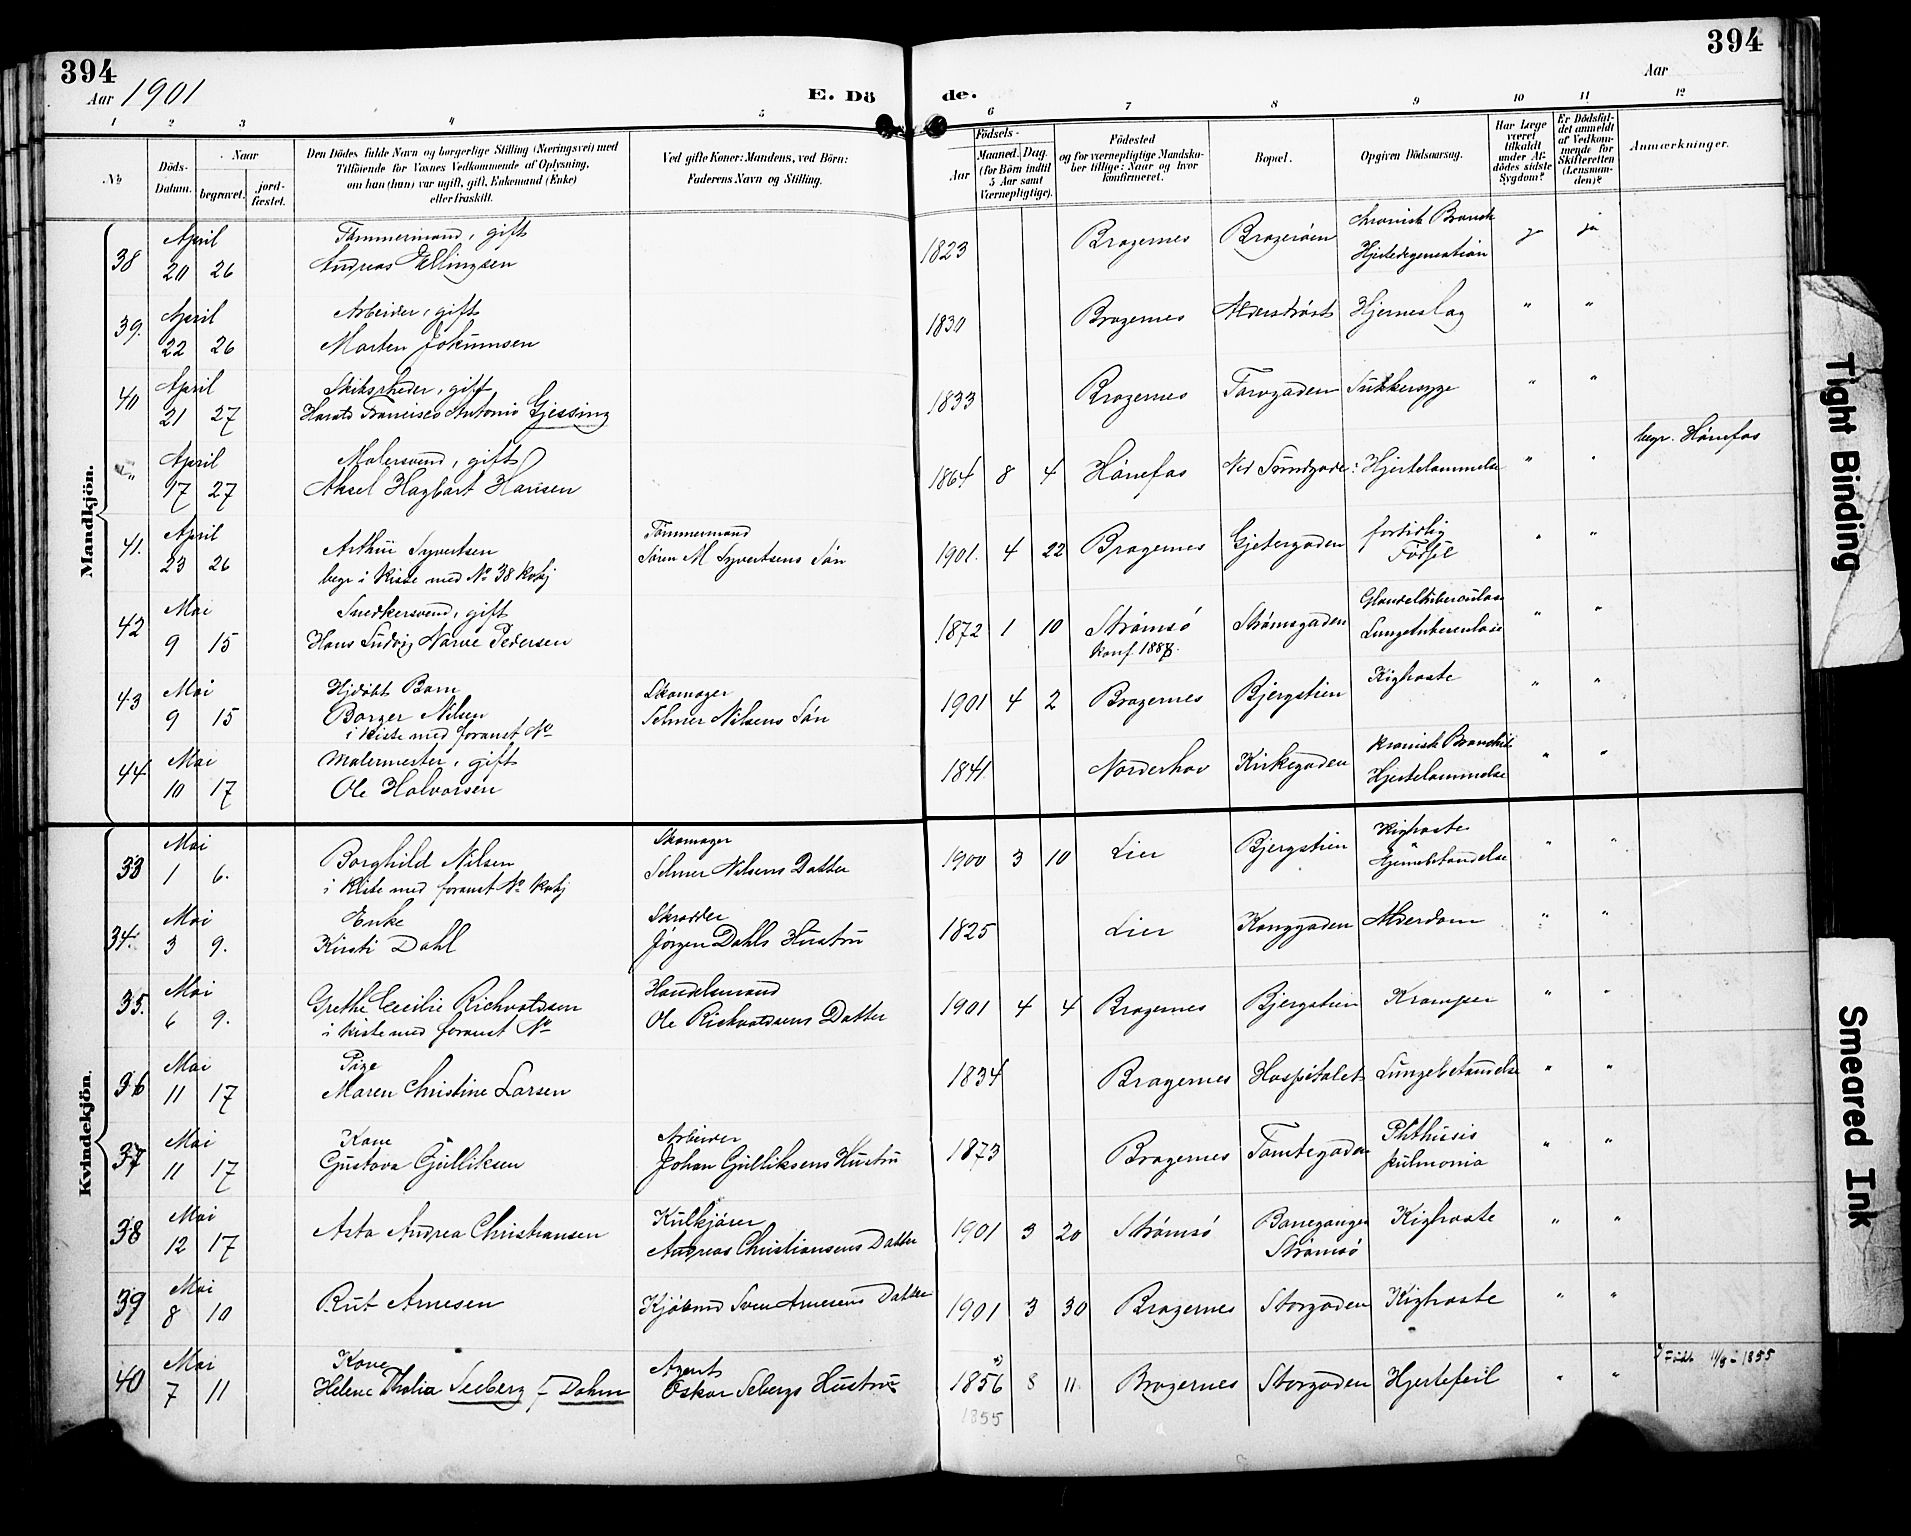 394
394
Aar 1901
Aar
E. Dö de.
1 2 3 4 5 6 7 8 9 10 11 12
No
Döds-Datum.
Naar
begravet.
jord-fæstet.
Den Dödes fulde Navn og borgerlige Stilling (Næringsvei) med
Tilföiende for Voxnes Vedkommende af Oplysning,
om han (hun) var ugift, gift, Enkemand (Enke)
eller fraskilt.
Ved gifte Koner: Mandens, ved Börn:
Faderens Navn og Stilling.
Födsels-
Aar
Maaned. Dag.
(for Börn indtil
5 Aar samt
Værnepligtige).
Födested
og for værnepligtige Mandska-
ber tillige: Naar og hvor
konfirmeret.
Bopæl.
Opgiven Dödsaarsag.
Har Læge
været
tilkaldt
under Af-
dödes sidste
Sygdom?
Er Dödsfal-
det anmeldt
af Vedkom-
mende for
Skifteretten
(Lensman-
den)?
Anmærkninger.
Mandkjön.
38 April 20 26 Tømmermand, gift
Andreas Ellingsen 1823 Bragernes Bragerøen chronisk Bronch
Hjertedegeneration ja
39. April 22 26 Arbeider, gift
Marten Jokumsen 1830 Bragernes Aldersdrøst Hjerneslag " "
40 April 21 27 Skibsrheder, gift
Harald Francisco Antonio Gjessing 1833 Bragernes Torvgaden Sukkersyge " "
April 17 27 Malersvend, gift
Aksel Hagbart Hansen 1864 8 4 Hønefos Ned Strandgade Hjertelammelse " " begr. Hønefos
41. April 23 26 Arthur Syvertsen
begr i Kiste med No 38 kvkj
Tømmermand
Søren M Syvertsens Søn 1901. 4 22 Bragernes Gjetergaden fortidlig
Fødsel " "
42 Mai 9 15 Snedkersvend, gift
Hans Ludvig Narve Pedersen 1872 1 10 Strømsø
Konf. 1887. Strømsgaden Glandeltuberculose
Lungetuberculose " "
43 Mai 9 15 Hjdøbt Barn
Borger Nilsen
i Kiste med foranst No
Skomager
Selmer Nilsens Søn 1901 4 2 Bragernes Bjergstien Kighoste " "
44 Mai 10 17 Malermester, gift
Ole Halvorsen 1841. Norderhov Kirkegaden kronisk Bronchit
Hjertelammelse " "
Kvindekjön.
33 Mai 1 6. Borghild Nilsen
i Kiste med foranst No kvkj
Skomager
Selmer Nilsens Datter 1900 3 10 Lier Bjergstien Kighoste
Hjernebetændelse " "
34. Mai 3 9. Enke
Kirsti Dahl
Skrædder
Jørgen Dahls Hustru 1825 Lier Konggaden Alderdom " "
35. Mai 6 9. Grethe Cecilie Richvoldsen
i Kiste med foranst No
Handelsmand
Ole Richvoldsens Datter 1901 4 4 Bragernes Bjergstien Kramper " "
36 Mai 11 17 Pige
Maren Christine Larsen 1834 Bragernes Hospitalet Lungebetændelse " "
37 Mai 11 17 Kone
Gustava Gulliksen
Arbeider
Johan Gulliksens Hustru 1873 Bragernes Tomtegaden Phthisis
pulmonia " "
38 Mai 12 17 Asta Andrea Christiansen
Kulkjører
Andreas Christiansens Datter 1901 3 20 Strømsø Banegangen
Strømsø Kighoste " "
39 Mai 8 10 Rut Arnesen
Kjøbmd Sven Arnesens Datter 1901 3 30 Bragernes Storgaden Kighoste " "
40 Mai 7 11 Kone
Helene Thalia Seeberg f Dahm
Agent
Oskar Sebergs Hustru 1856 8 11. Bragernes Storgaden Hjertefeil " " Født 11/8 - 1855
1855
Tight Binding
Smeared Ink